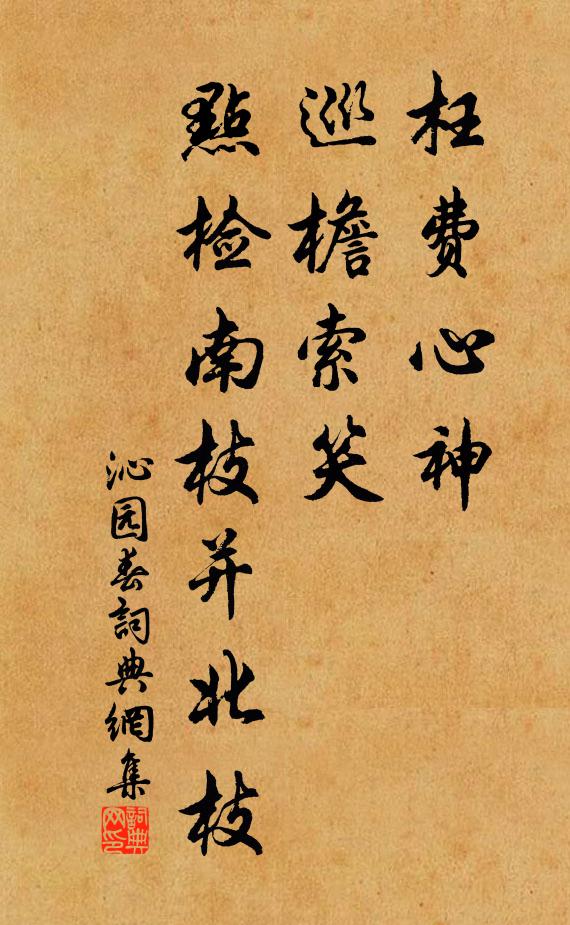 枉费心神
巡檐索笑
點检南枝并北枝
沁园春詞典網集
詞典网印